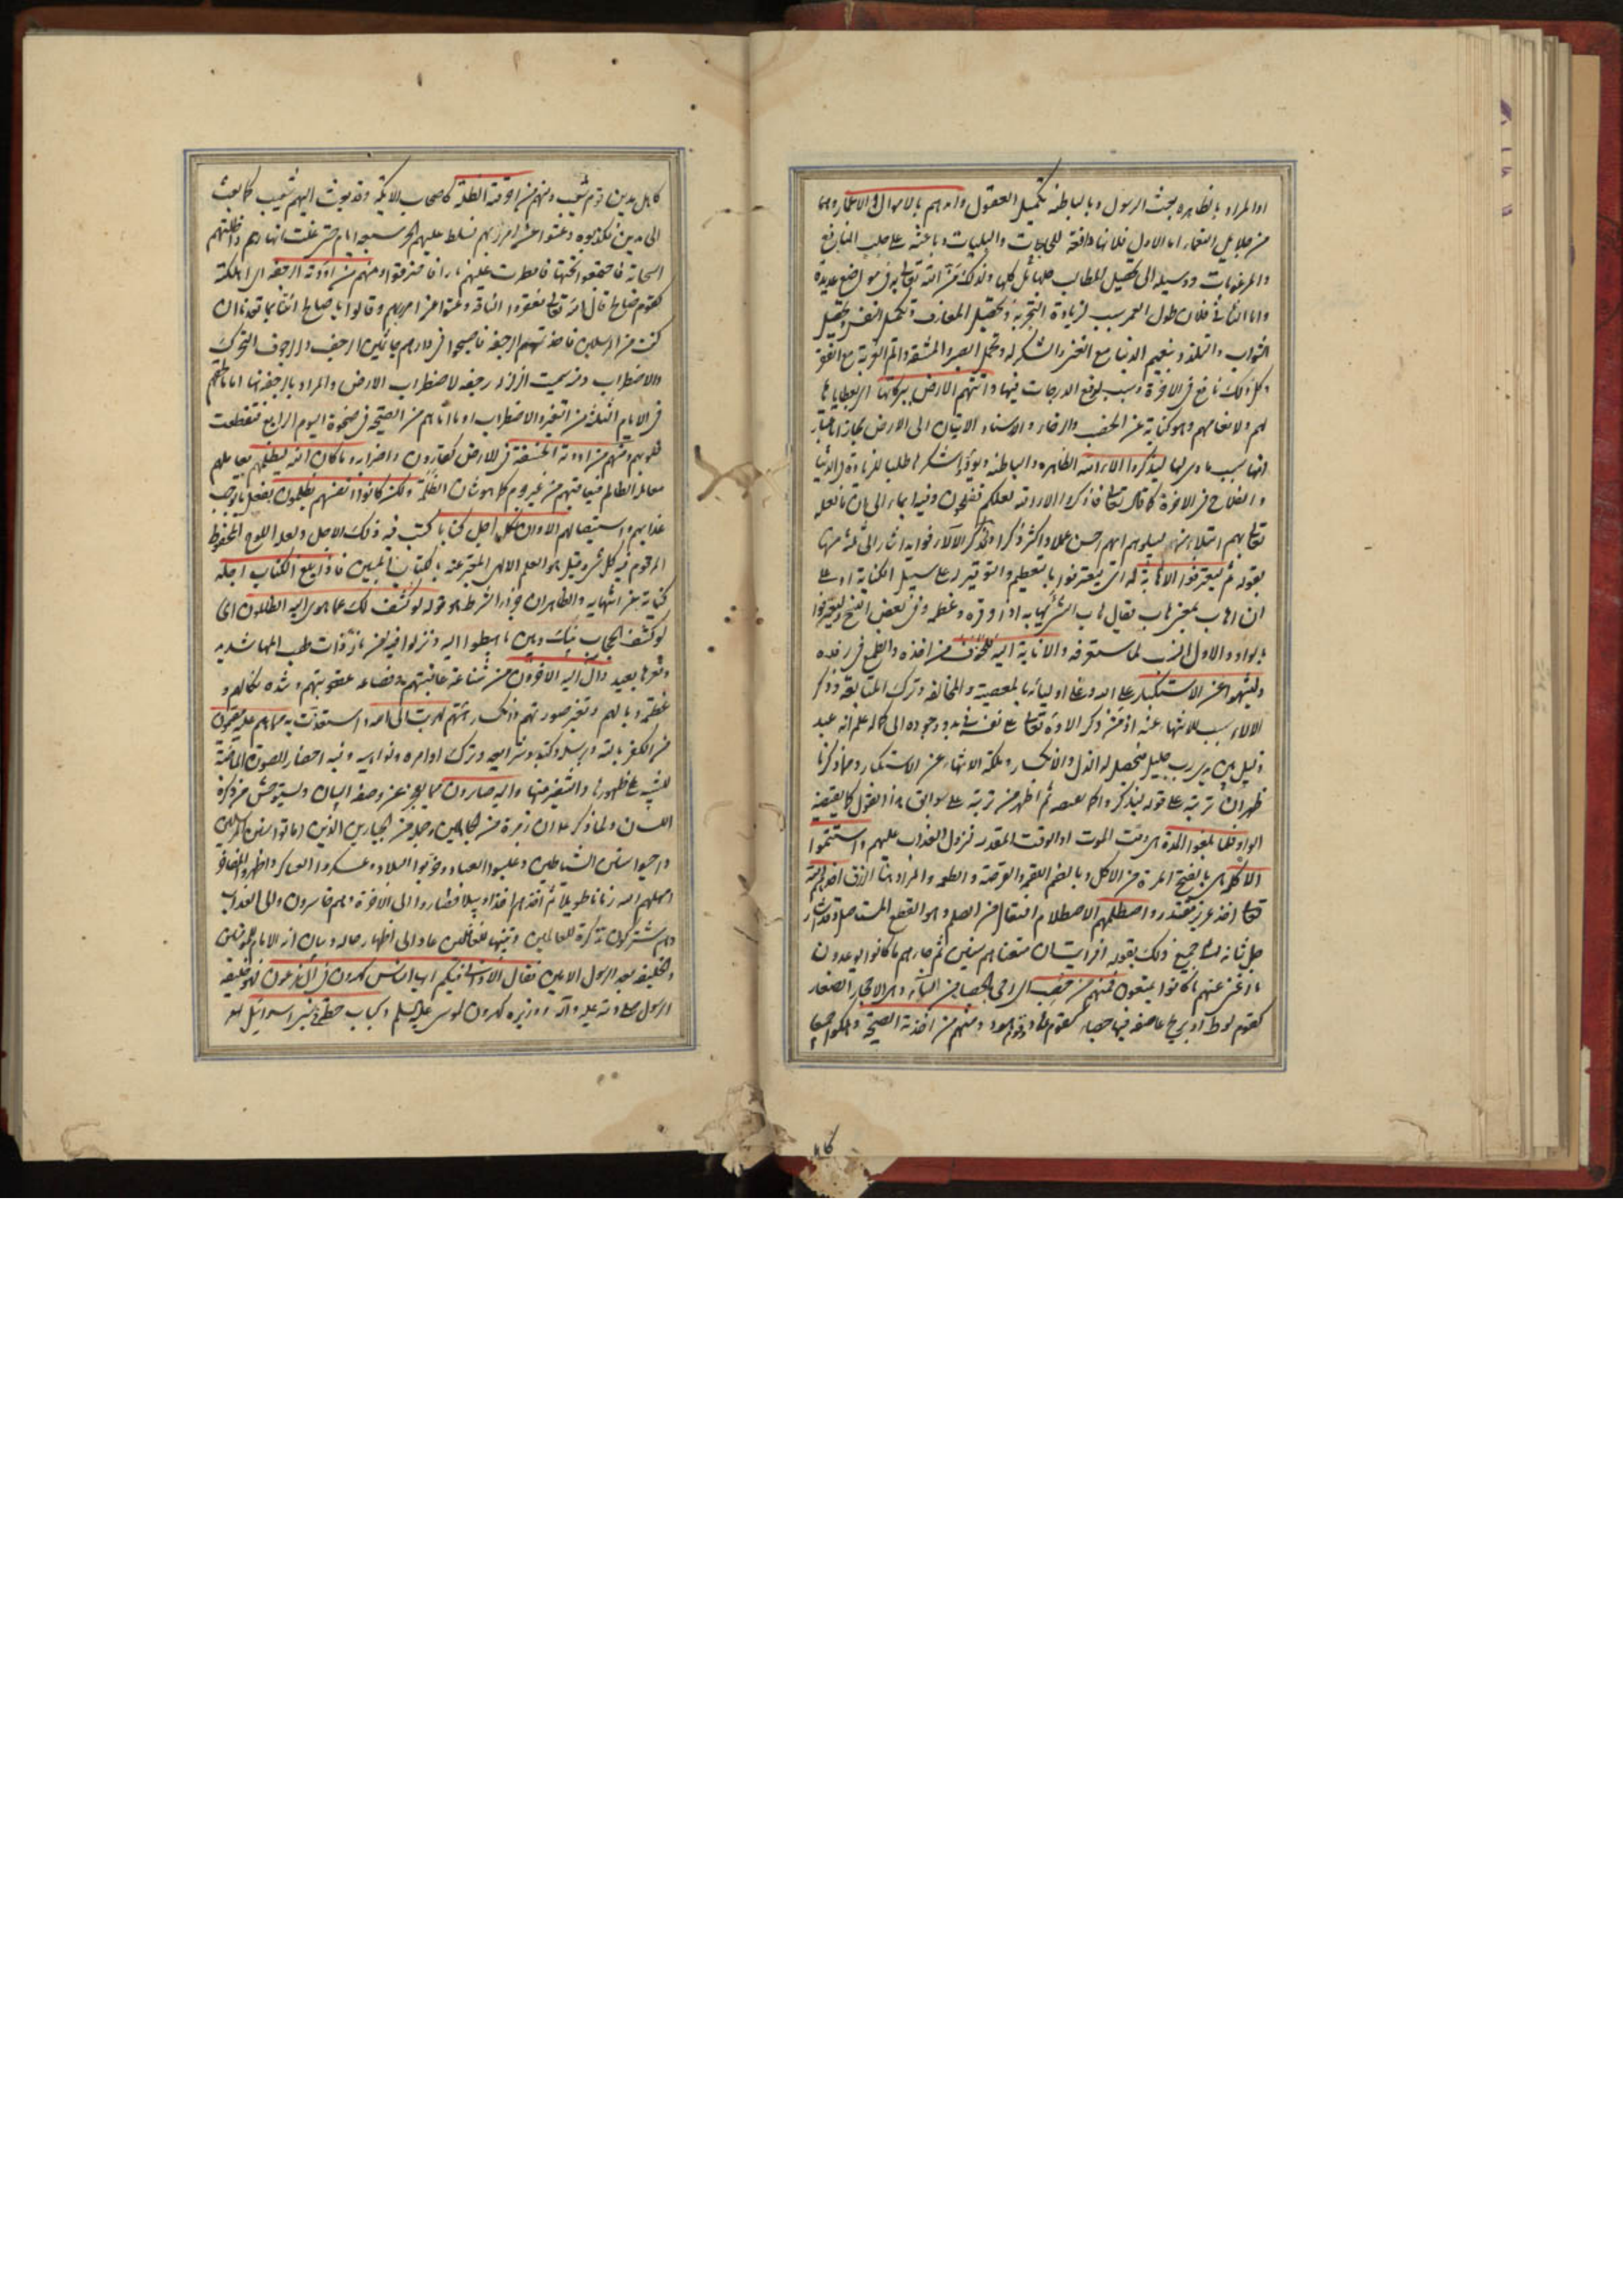 او المراد بالظاهره بعث الرسول وبالباطنه تكميل العقول وامدهم بالاموال والاعمار وهما
من جلايل النعماء اما الاول فلانها دافعة للحاجات والبليات وباعثة على جلب المنافع
والمرغوبات ووسيله الى تحصيل المطالب جلها بل كلها ولذلك منّ الله تعالى به فى مواضع عديدة
واما الثانى فلان طول العمر سبب لزيادة التجربة وتحصيل المعارف وتكميل النفس وتحصيل
الثواب والتلذذ بنعيم الدنيا مع الغنى والشكر له وتحمل الصبر والمشقه والم التوبة مع الفقر
وكل ذلك نافع فى الاخرة وسبب لرفع الدرجات فيها واتتهم الارض ببركاتها اى بعطاياها
لهم ولانعامهم وهو كناية عن الخصب والرخاء والاسناد الاتيان الى الارض مجاز باعتبار
انها سبب مادى لها ليذكروا الاء الله الظاهره والباطنه ويؤدوا شكرها طلبا للزيادة فى الدنيا
والفلاح فى الاخرة كما قال تعالى فاذكروا الاء الله لعلكم تفلحون وفيه ايماء الى ان ما فعله
تعالى بهم ابتلاء منه ليبلوهم ايهم احسن عملا واكثر ذكرا ولتذكر الآلاء فوايد اشار الى ثلثة منها
بقوله ثم ليعترفوا الاهابة له اى يعترفوا بالتعظيم والتوقير له على سبيل الكناية او على
ان اهاب بمعنى هاب يقال هاب الشئ يهابه اذا وقره وعظمه وفى بعض النسخ وليعترفوا
بالواو والاول انسب لما ستعرفه والانابة اليه للخوف من اخذه والطمع فى رفده
ولينتهوا عن الاستكبار على الله وعلى اوليائه بالمعصية والمخالفه وترك المتابعة وذكر
الالاء سبب للانتهاء عنه اذ من ذكر الاءه تعالى على نفسه فى بدو وجوده الى كماله علم انه عبد
ذليل بين يدى رب جليل فيحصل له الذل والانكسار وملكة الانتهاء عن الاستكبار ومما ذكرنا
ظهر ان ترتبه على قوله ليذكروا
الواو فلما بلغوا المدة اى وقت الموت او الوقت المقدر لنزول العذاب عليهم واستتموا
الاكلة هى بالفتح المرة من الاكل وبالضم اللقمه والقرصة والطعمه والمراد هنا الرزق اخذهم الله
تعالى اخذ عزيز مقتدر واصطلمهم الاصطلام افتعال من الصلم وهو القطع المستاصل وقد اشار
جل شانه الى جميع ذلك بقوله افرايت ان متعناهم سنين ثم جاءهم ما كانوا يوعدون
ما اغنى عنهم ما كانوا يمتعون فمنهم من حصب اى رمى بالحصباء من السماء وهى الاحجار الصغار
كقوم لوط او بريح عاصفة فيها حصباء كقوم هود ومنهم من اخذته الصيحة وهلكوا جميعا
كاهل
كاهل مدين قوم شعيب ومنهم من احرقته الظلة كاصحاب الايكة وقد بعث اليهم شعيب كما بعث
الى مدين فكذبوه وعتوا عن امر ربهم فسلط عليهم الحر سبعة ايام حتى غلت انهارهم واظلتهم
السحابة فاجتمعوا تحتها فامطرت عليهم نارا فاحترقوا ومنهم من اودته الرجفه اى اهلكته
كقوم صالح قال الله تعالى فعقروا الناقة وعتوا عن امر ربهم وقالوا يا صالح ائتنا بما تعدنا ان
كنت من المرسلين فاخذتهم الرجفة فاصبحوا فى دارهم جاثمين الرجف والرجوف التحرك
والاضطراب ومنه سميت الزلزله رجفه لاضطراب الارض والمراد بالرجفة هنا اما ما لحقهم
فى الايام الثلثة من التغير والاضطراب او ما اتاهم من الصيحة فى ضحوة اليوم الرابع فتقطعت
قلوبهم ومنهم من اودته الخسفة فى الارض كقارون واضرابه وما كان الله ليظلمهم بمعاملتهم
معاملة الظالم فيعاقبهم من غير جرم كما هو شان الظلمة ولكن كانوا انفسهم يظلمون بفعل ما يوجب
عذابهم واستيصالهم الا وان لكل اجل كتابا كتب فيه ذلك الاجل ولعله اللوح المحفوظ
المرقوم فيه كل شئ وقيل هو العلم الالهى المعبر عنه بالكتاب المبين فاذا بلغ الكتاب اجله
كناية عن انتهائه والظاهر ان جزاء الشرط هو قوله لو كشف لك عما هوى اليه الظالمون اى
لو كشف الحجاب بينك وبين ما هبطوا اليه ونزلوا فيه من نار ذات لهب المها شديد
وقعرها بعيد وآل اليه الاخسرون من شناعة عاقبتهم وفضاعة عقوبتهم وشدة نكالهم و
عظمة وبالهم وتغير صورتهم وانكسار هيئتهم لهربت الى الله واستعذت به مما هم عليه مقيمون
من الكفر بالله وبرسله وكتبه وشرايعه وترك اوامره ونواهيه وفيه احضار للصورة الماضية
للتنبيه على ظهورها والتنفير منها واليه صايرون مما يعجز عن وصفه البيان ويستوحش من ذكره
اللسان ولما ذكر على ان زمرة من الجاهلين وجملة من الجبارين الذين اماتوا سنن المرسلين
واحيوا سنن الشياطين وغلبوا العباد وخربوا البلاد وعسكروا العساكر واظهروا المفاخر
امهلهم الله زمانا طويلا ثم اخذهم اخذا وبيلا فصاروا الى الاخرة وهم خاسرون والى العذاب
وهم مشتركون تذكرة للعالمين وتنبيها للغافلين عاد الى اظهار حاله وبيان انه الامام المبين
والخليفة بعد الرسول الامين فقال الا وانى فيكم ايها الناس كهرون فى آل فرعون فهو خليفة
الرسول صلى الله عليه وآله ووزيره كهرون لموسى عليه السلم وكباب حطة فى بنى اسرائيل